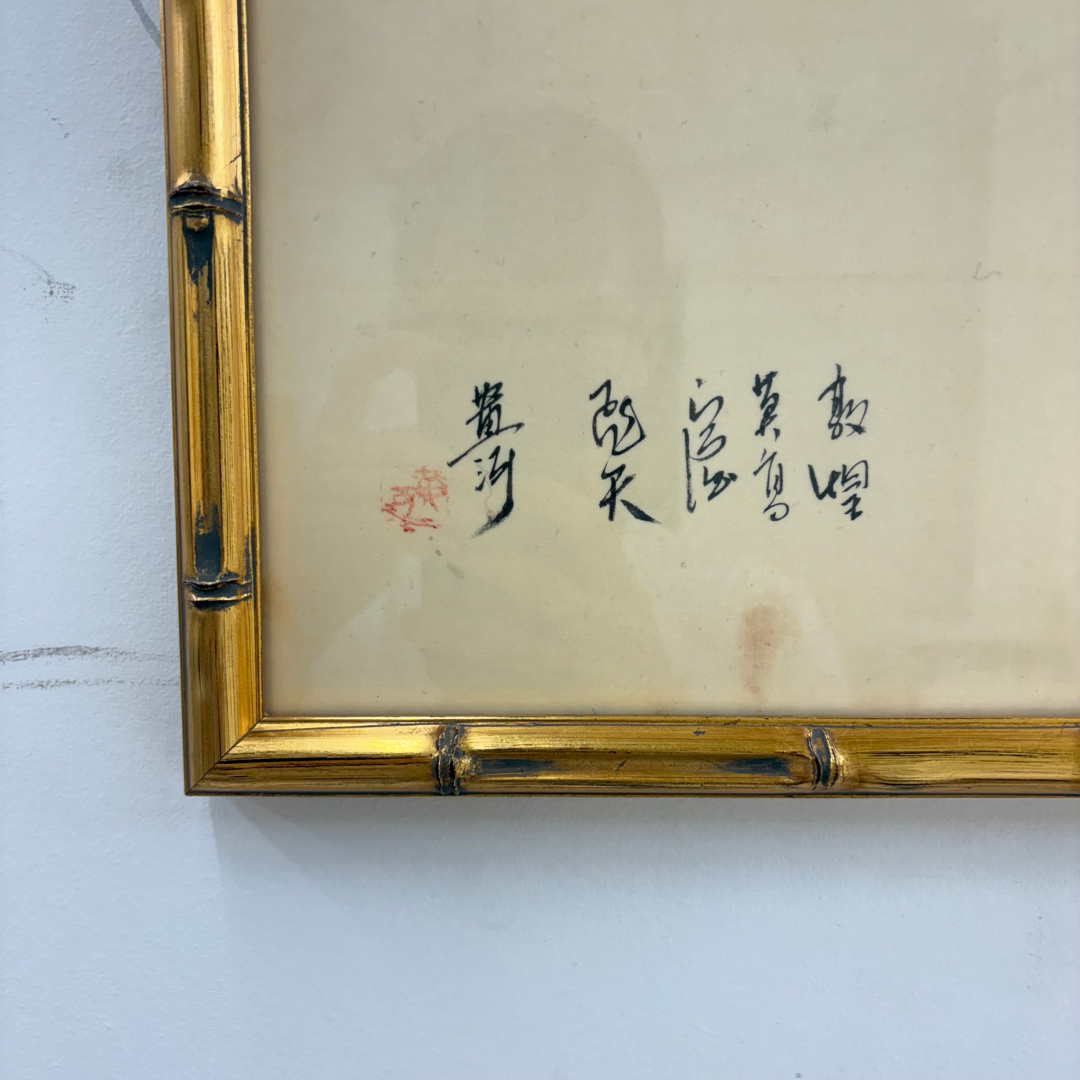 敦煌
莫高
窟
飛天
黄河